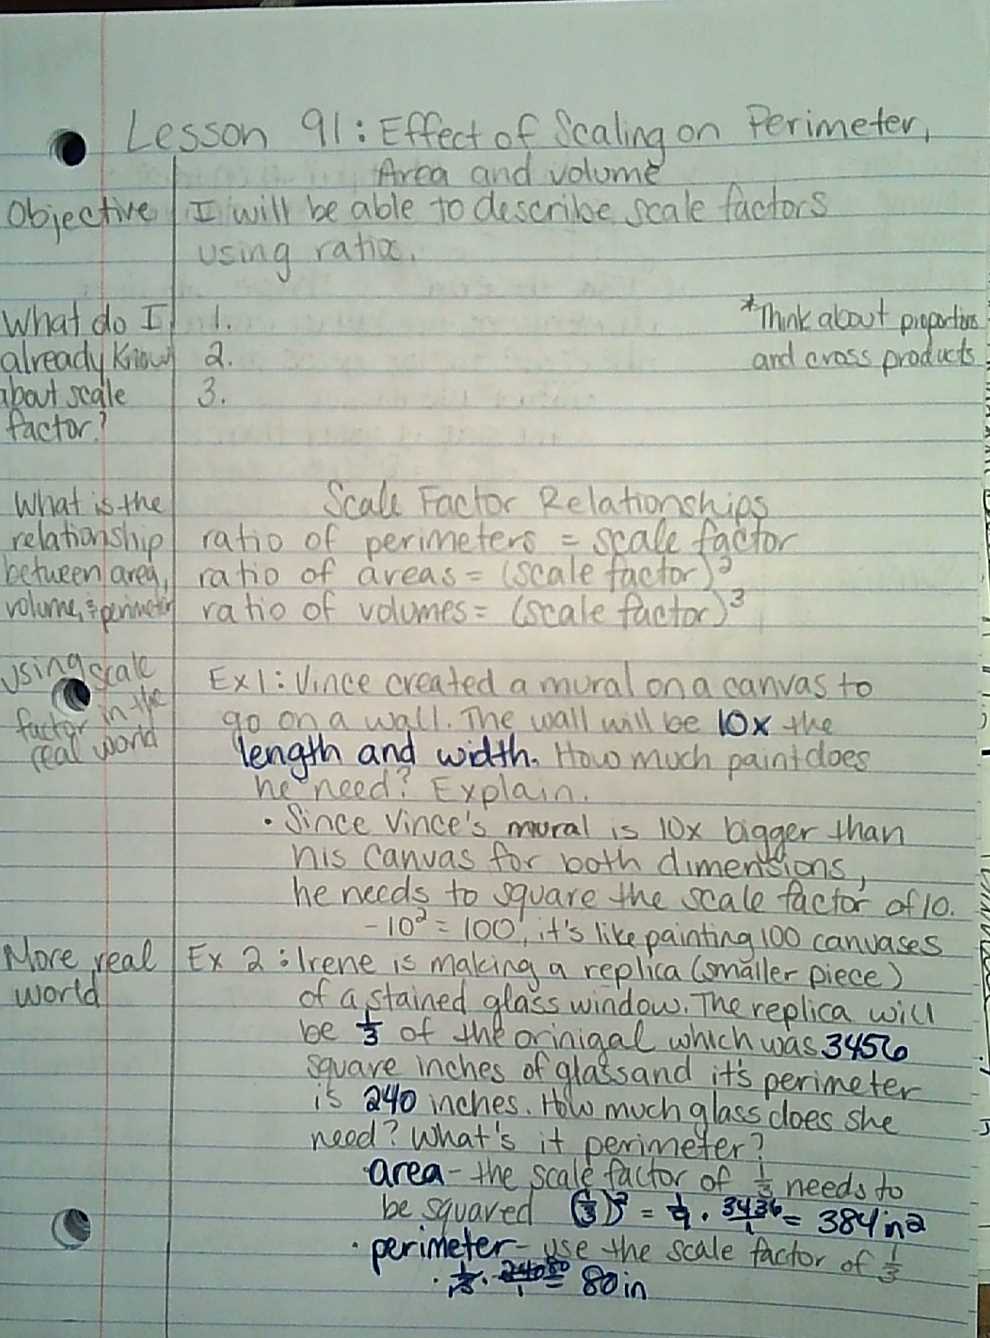 Lesson 91: Effect of Scaling on Perimeter,
Area and volume
Objective
I will be able to describe scale factors
using ratios.
What do I
already Know
about scale
factor?
1.
2.
3.
*Think about proportions
and cross products
What is the
relationship
between area,
volume, & perimeter
Scale Factor Relationships
ratio of perimeters = scale factor
ratio of areas = (scale factor)²
ratio of volumes = (scale factor)³
Using scale
factor in the
real world
Ex 1: Vince created a mural on a canvas to
go on a wall. The wall will be 10x the
length and width. How much paint does
he need? Explain.
• Since Vince's mural is 10x bigger than
his canvas for both dimensions,
he needs to square the scale factor of 10.
- 10² = 100, it's like painting 100 canvases
More real
world
Ex 2: Irene is making a replica (smaller piece)
of a stained glass window. The replica will
be 1/3 of the orinigal which was 3456
square inches of glass and it's perimeter
is 240 inches. How much glass does she
need? What's it perimeter?
• area - the scale factor of 1/3 needs to
be squared (1/3)² = 1/9 · 3436/1 = 384 in2
• perimeter - use the scale factor of 1/3
· 1/3 · 240/1 = 80 in